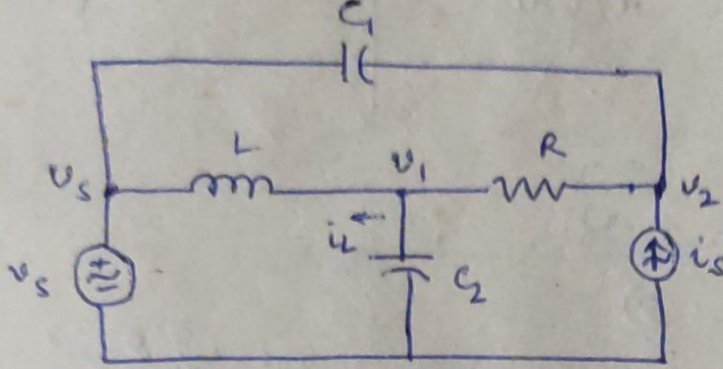 C₁
L
R
v₁
vₛ
v₂
i_L
vₛ
+
C₂
iₛ